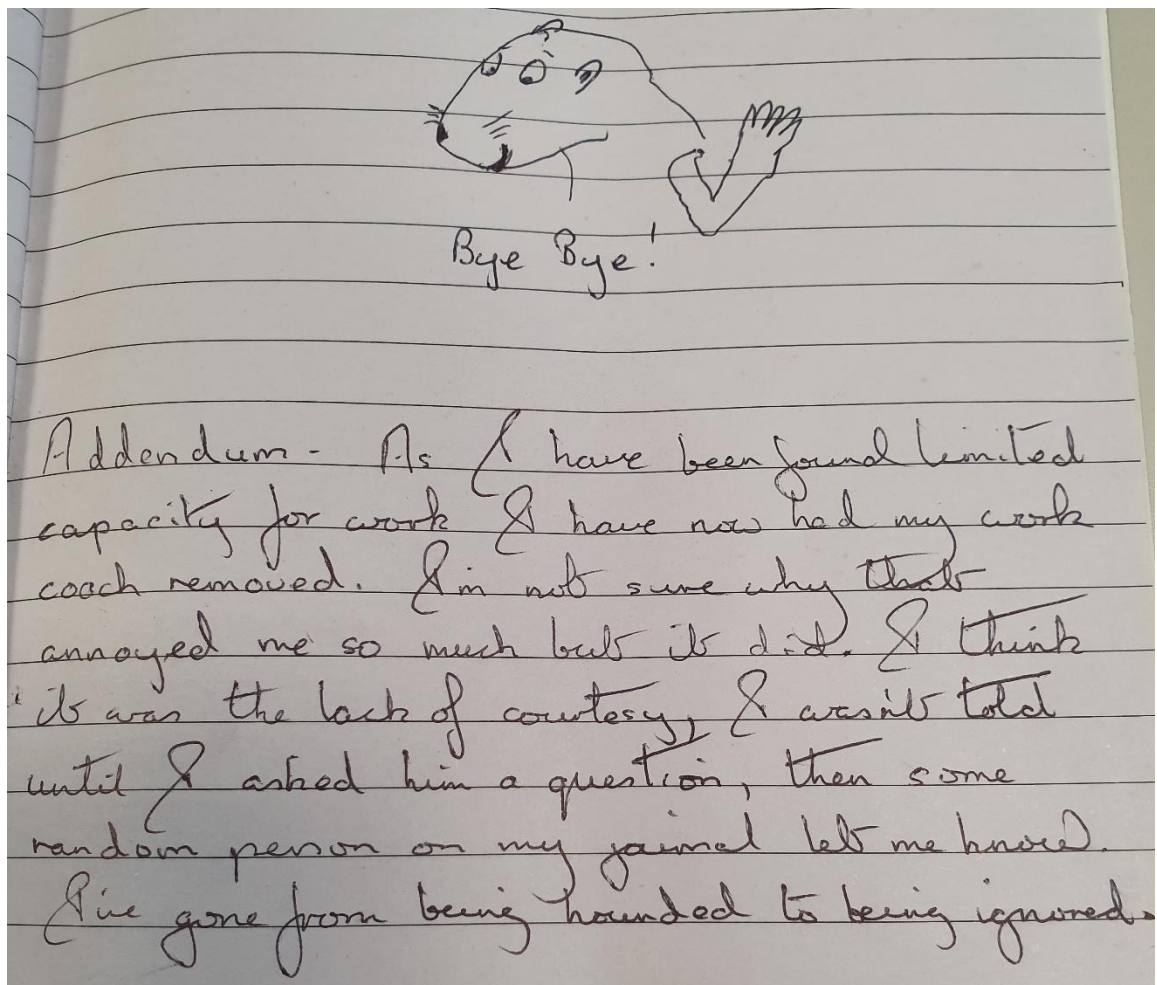 Bye Bye!
Addendum - As I have been found limited
capacity for work I have now had my work
coach removed. I'm not sure why that
annoyed me so much but it did. I think
it was the lack of courtesy, I wasn't told
until I asked him a question, then some
random person on my jairnal let me know.
I've gone from being hounded to being ignored.